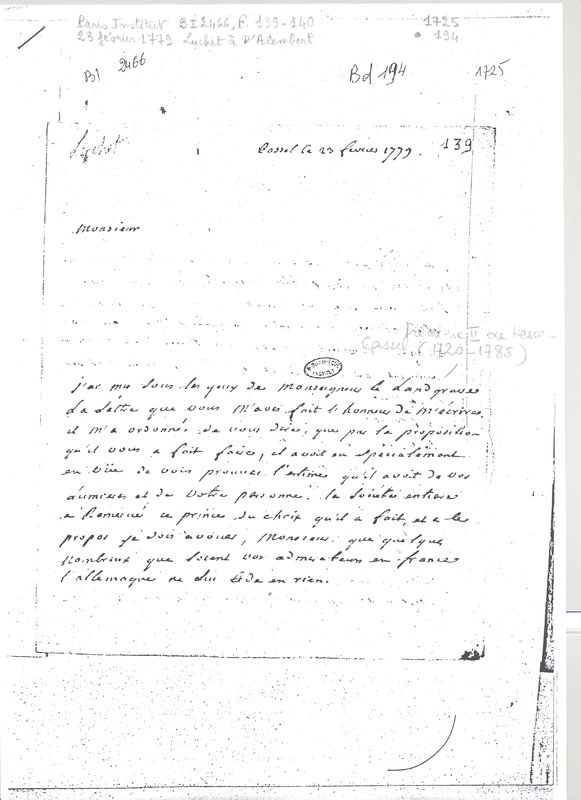 Paris Institut BI 2466, F. 139-140 1725
23 février 1779 Luchet à D'Alembert 194
BI 2466 Bd 194 1725
Luchet Cassel le 23 févries 1779. 139
Monsieur
Frédéric II de Hesse-
Cassel (1720-1785)
j'ai mis sous les yeux de Monseigneur le Landgrave
La Lettre que vous m'avés fait l'honneur de m'écrire,
il m'a ordonné de vous dire, que par la proposition
qu'il vous a fait faire, il avoit eu spécialement
en vüe de vous prouver l'estime qu'il avoit de vos
Lumieres et de votre personne. la Société entiere
a Remercié ce prince du choix qu'il a fait, et a ce
propos je dois avouer, Monsieur que quelques
Nombreux que soient vos admirateurs en france
l'allemagne ne lui cède en rien.